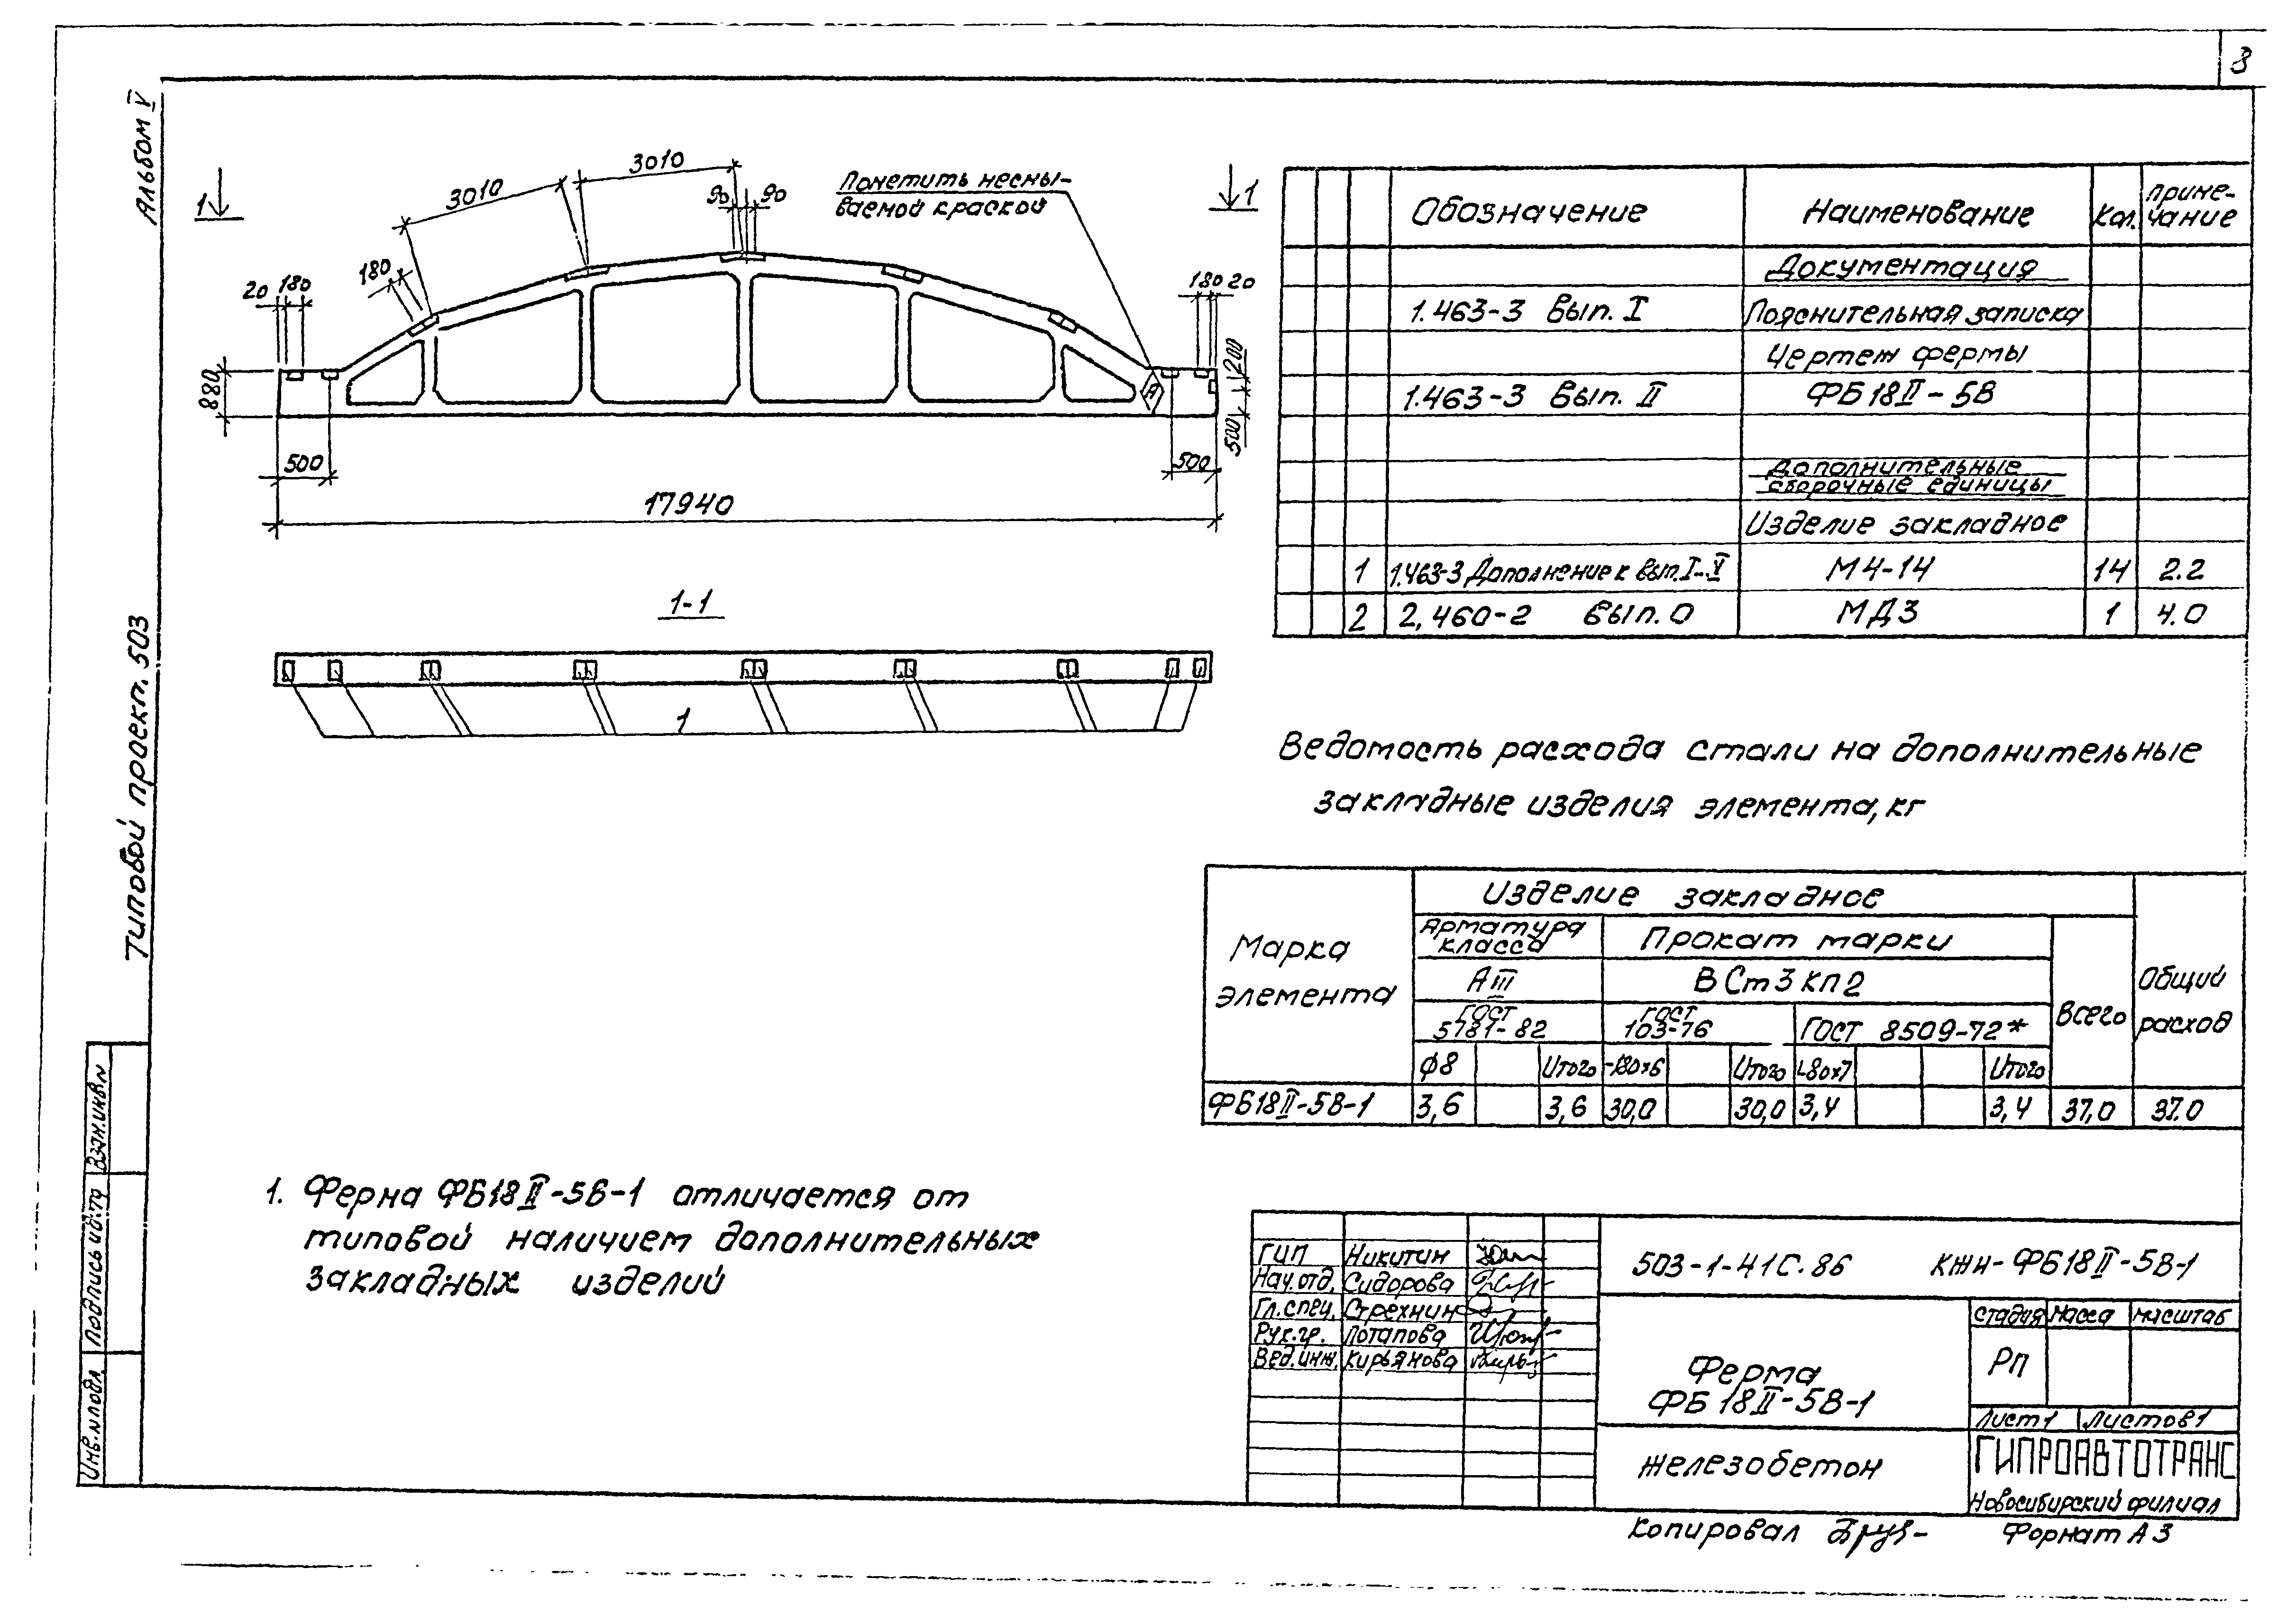 3
Альбом V
Типовой проект. 503
Взам.инв№
Подпись и дата
Инв.№подл
1
1
3010
3010
90
90
180
20 180
180 20
880
200
500
500
500
17940
Пометить несмы-
ваемой краской
1-1
1
Обозначение Наименование Кол. Приме-
чание
Документация
1.463-3 Вып. I Пояснительная записка
Чертеж фермы
1.463-3 Вып. II ФБ18II-5В
Дополнительные
сборочные единицы
Изделие закладное
1 1.463-3 Дополнение к вып. I-V М4-14 14 2.2
2 2,460-2 Вып. 0 МД3 1 4.0
Ведомость расхода стали на дополнительные
закладные изделия элемента, кг
Марка
элемента
Изделие закладное
Арматура
класса
Прокат марки
АIII
ВСт3кп2
ГОСТ
5781-82
ГОСТ
103-76
ГОСТ 8509-72*
Всего
Общий
расход
ф8 Итого -180×6 Итого L80×7 Итого
ФБ18II-5В-1 3,6 3,6 30,0 30,0 3,4 3,4 37,0 37.0
1. Ферма ФБ18II-5В-1 отличается от
типовой наличием дополнительных
закладных изделий
ГИП Никитин
Нач.отд. Сидорова
Гл.спец. Стрехнин
Рук.гр. Потапова
Вед.инж. Кирьянова
503-1-41С.86 КЖИ-ФБ18II-5В-1
Ферма
ФБ 18II-5В-1
Стадия Масса Масштаб
РП
Лист 1 Листов 1
Железобетон
ГИПРОАВТОТРАНС
Новосибирский филиал
Копировал
Формат А3